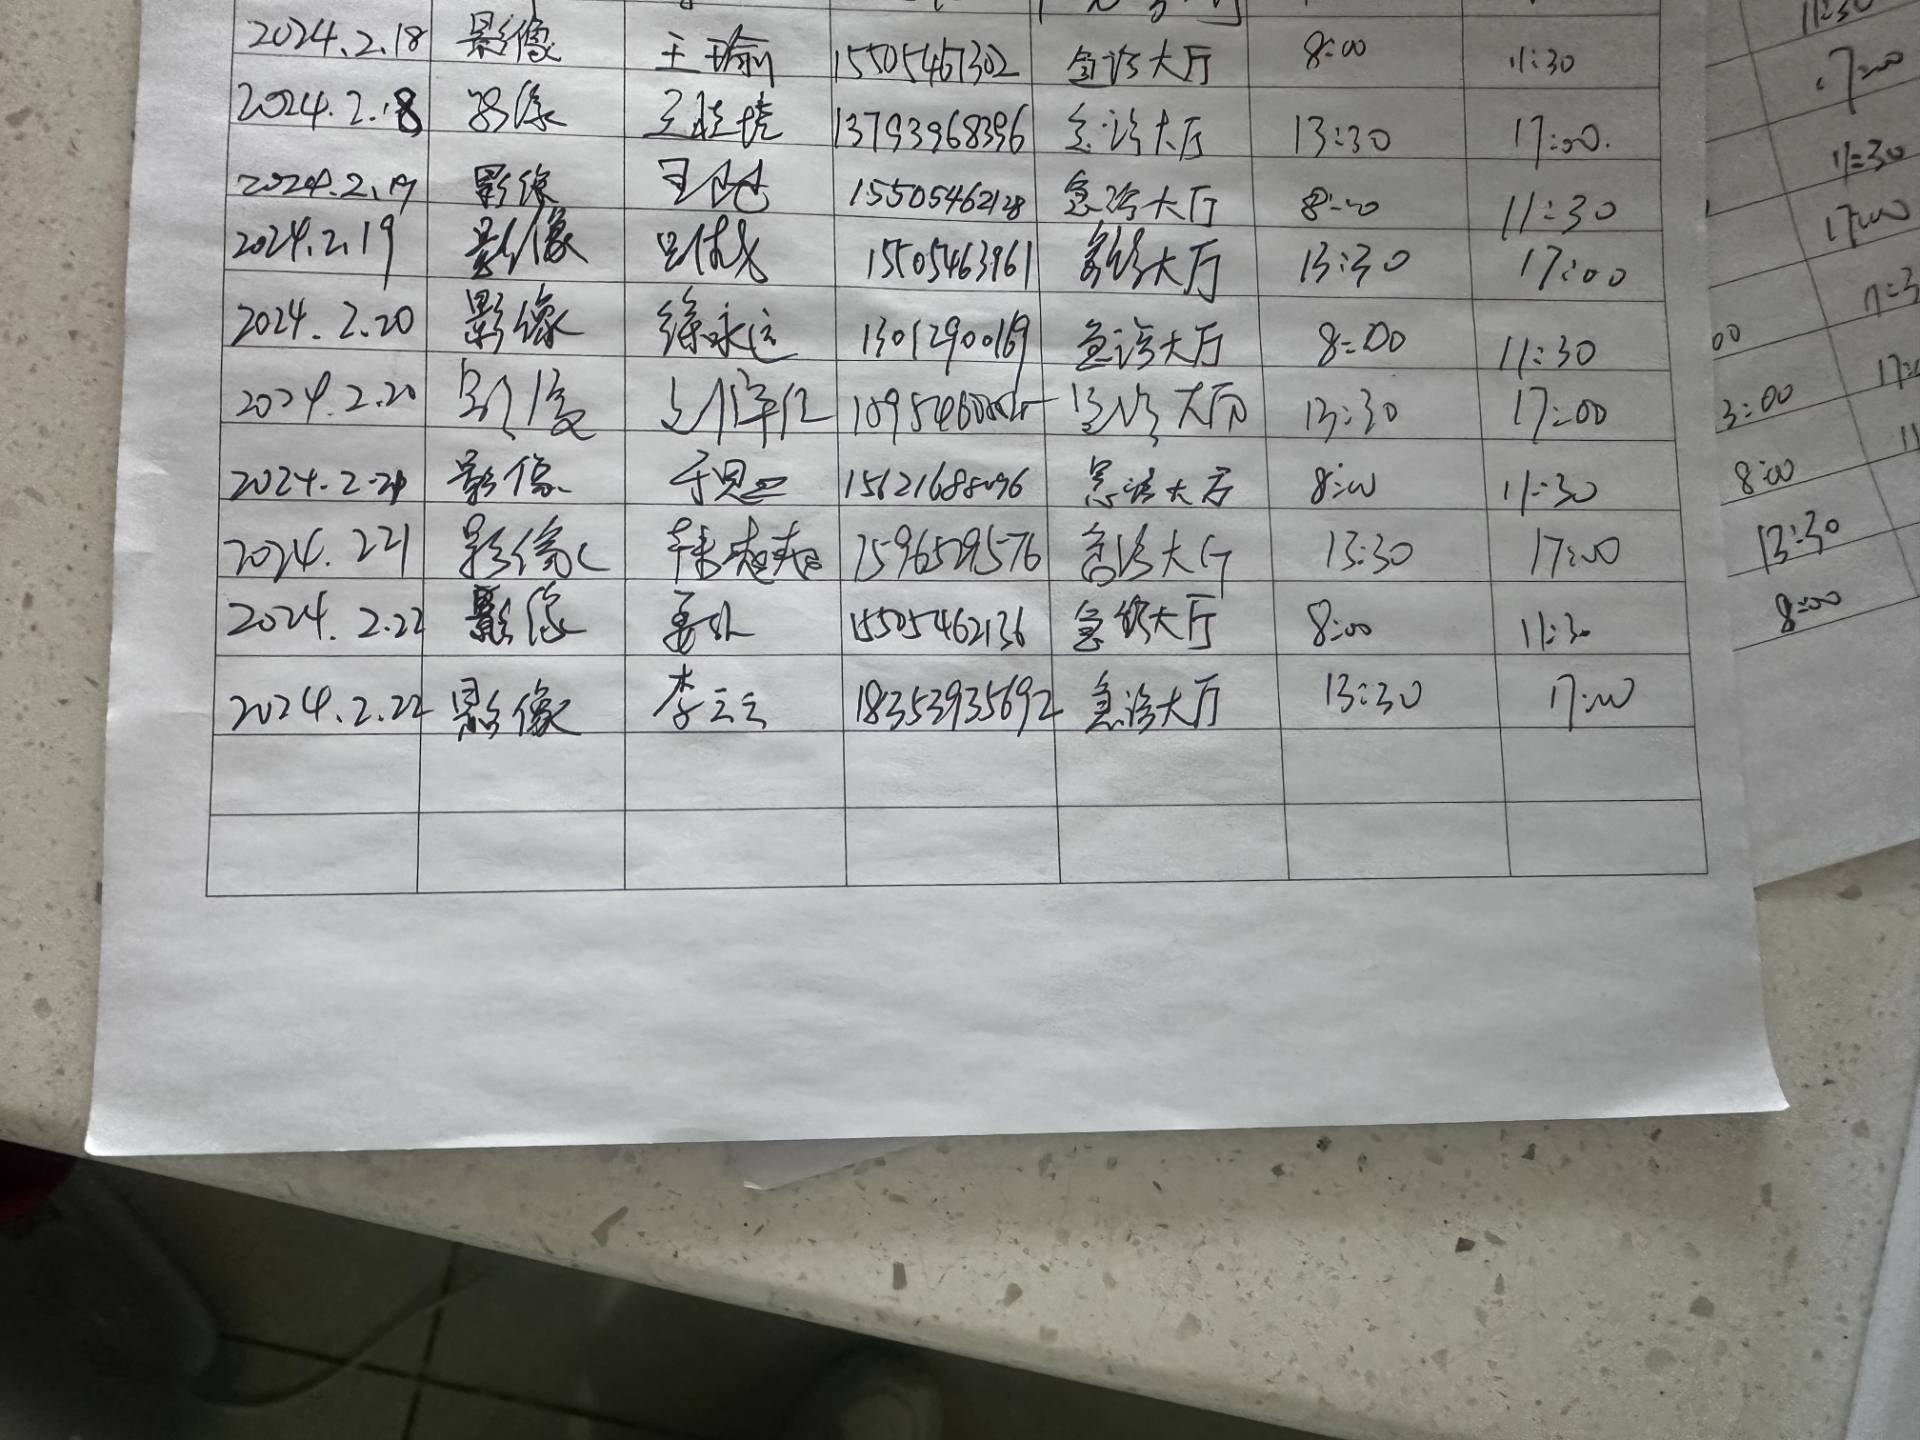 2024.2.18 影像 王瑜 15505467302 急诊大厅 8:00 11:30
2024.2.18 影像 13793968396 急诊大厅 13:30 17:00.
2024.2.19 影像 15505462128 急诊大厅 8:00 11:30
2024.2.19 影像 15505463961 急诊大厅 13:30 17:00
2024.2.20 影像 徐永运 13012900169 急诊大厅 8:00 11:30
2024.2.20 影像 急诊大厅 13:30 17:00
2024.2.21 影像 急诊大厅 8:00 11:30
2024.221 影像 韩超超 急诊大厅 13:30 17:00
2024.2.22 影像 15505462136 急诊大厅 8:00 11:30
2024.2.22 影像 李云云 18353935692 急诊大厅 13:30 17:00
11:30
17:00
11:30
17:00
11:3
00 17:
3:00 11
8:00
13:30
8:00